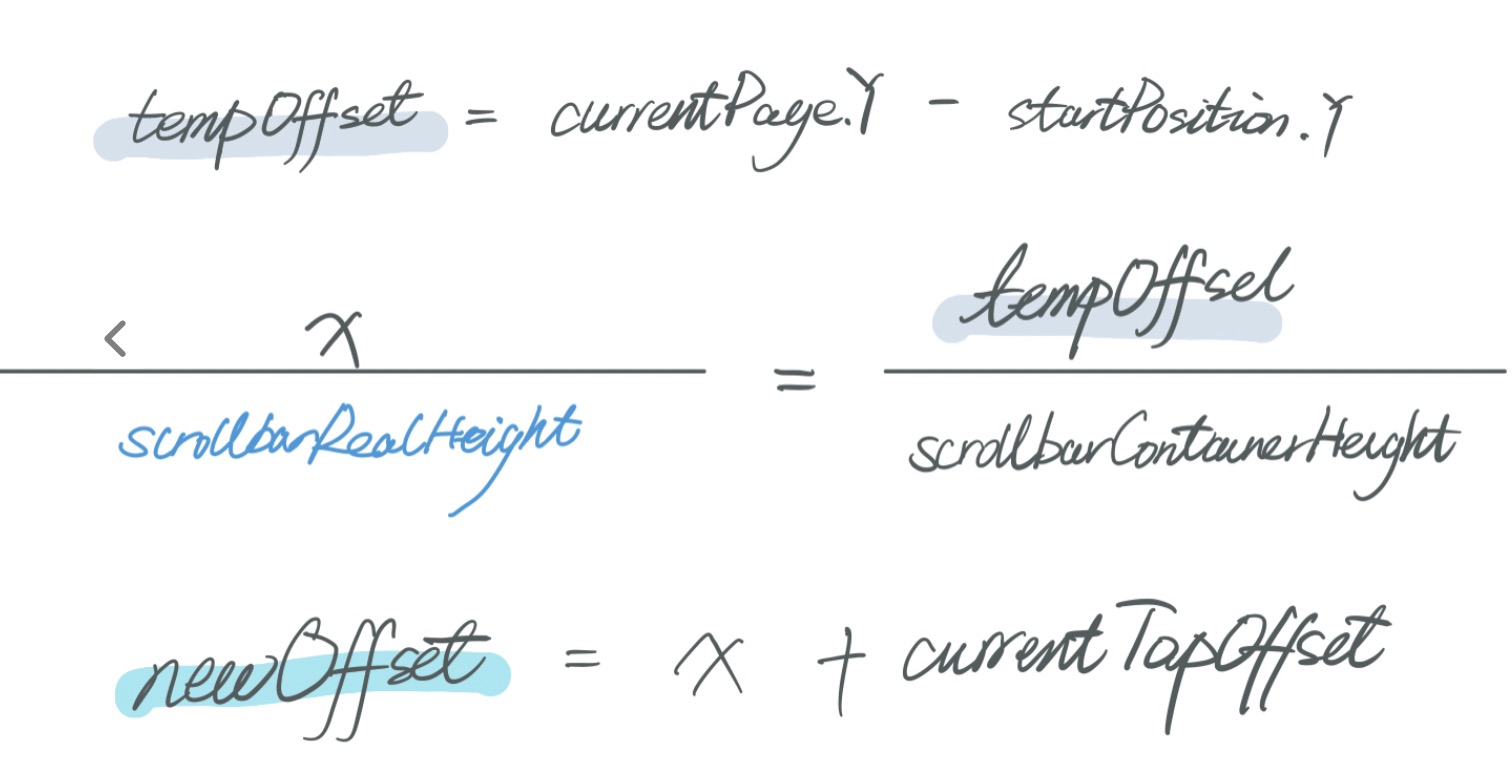 tempOffset = currentPage.Y - startPosition.Y
x / scrollbarRealHeight = tempOffset / scrollbarContainerHeight
newOffset = x + currentTapOffset